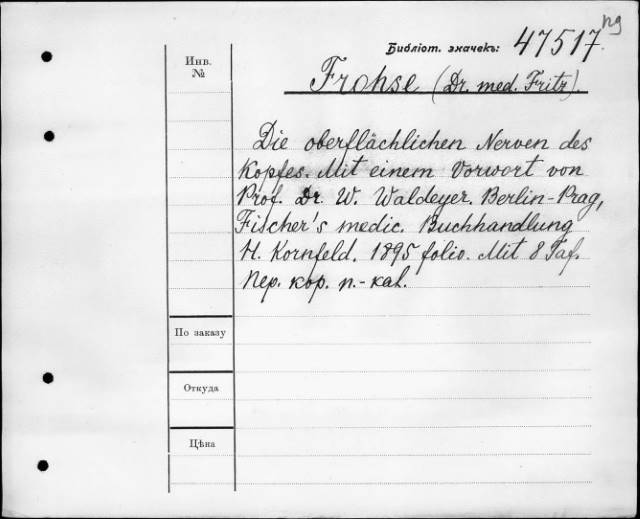 ng
Библіот. значекъ: 47517.
Инв.
№
Frohse (Dr. med. Fritz).
Die oberflächlichen Nerven des
Kopfes. Mit einem Vorwort von
Prof. Dr. W. Waldeyer. Berlin-Prag,
Fischer's medic. Buchhandlung
H. Kornfeld. 1895 folio. Mit 8 Taf.
Пер. кор. п.-кал.
По заказу
Откуда
Цѣна